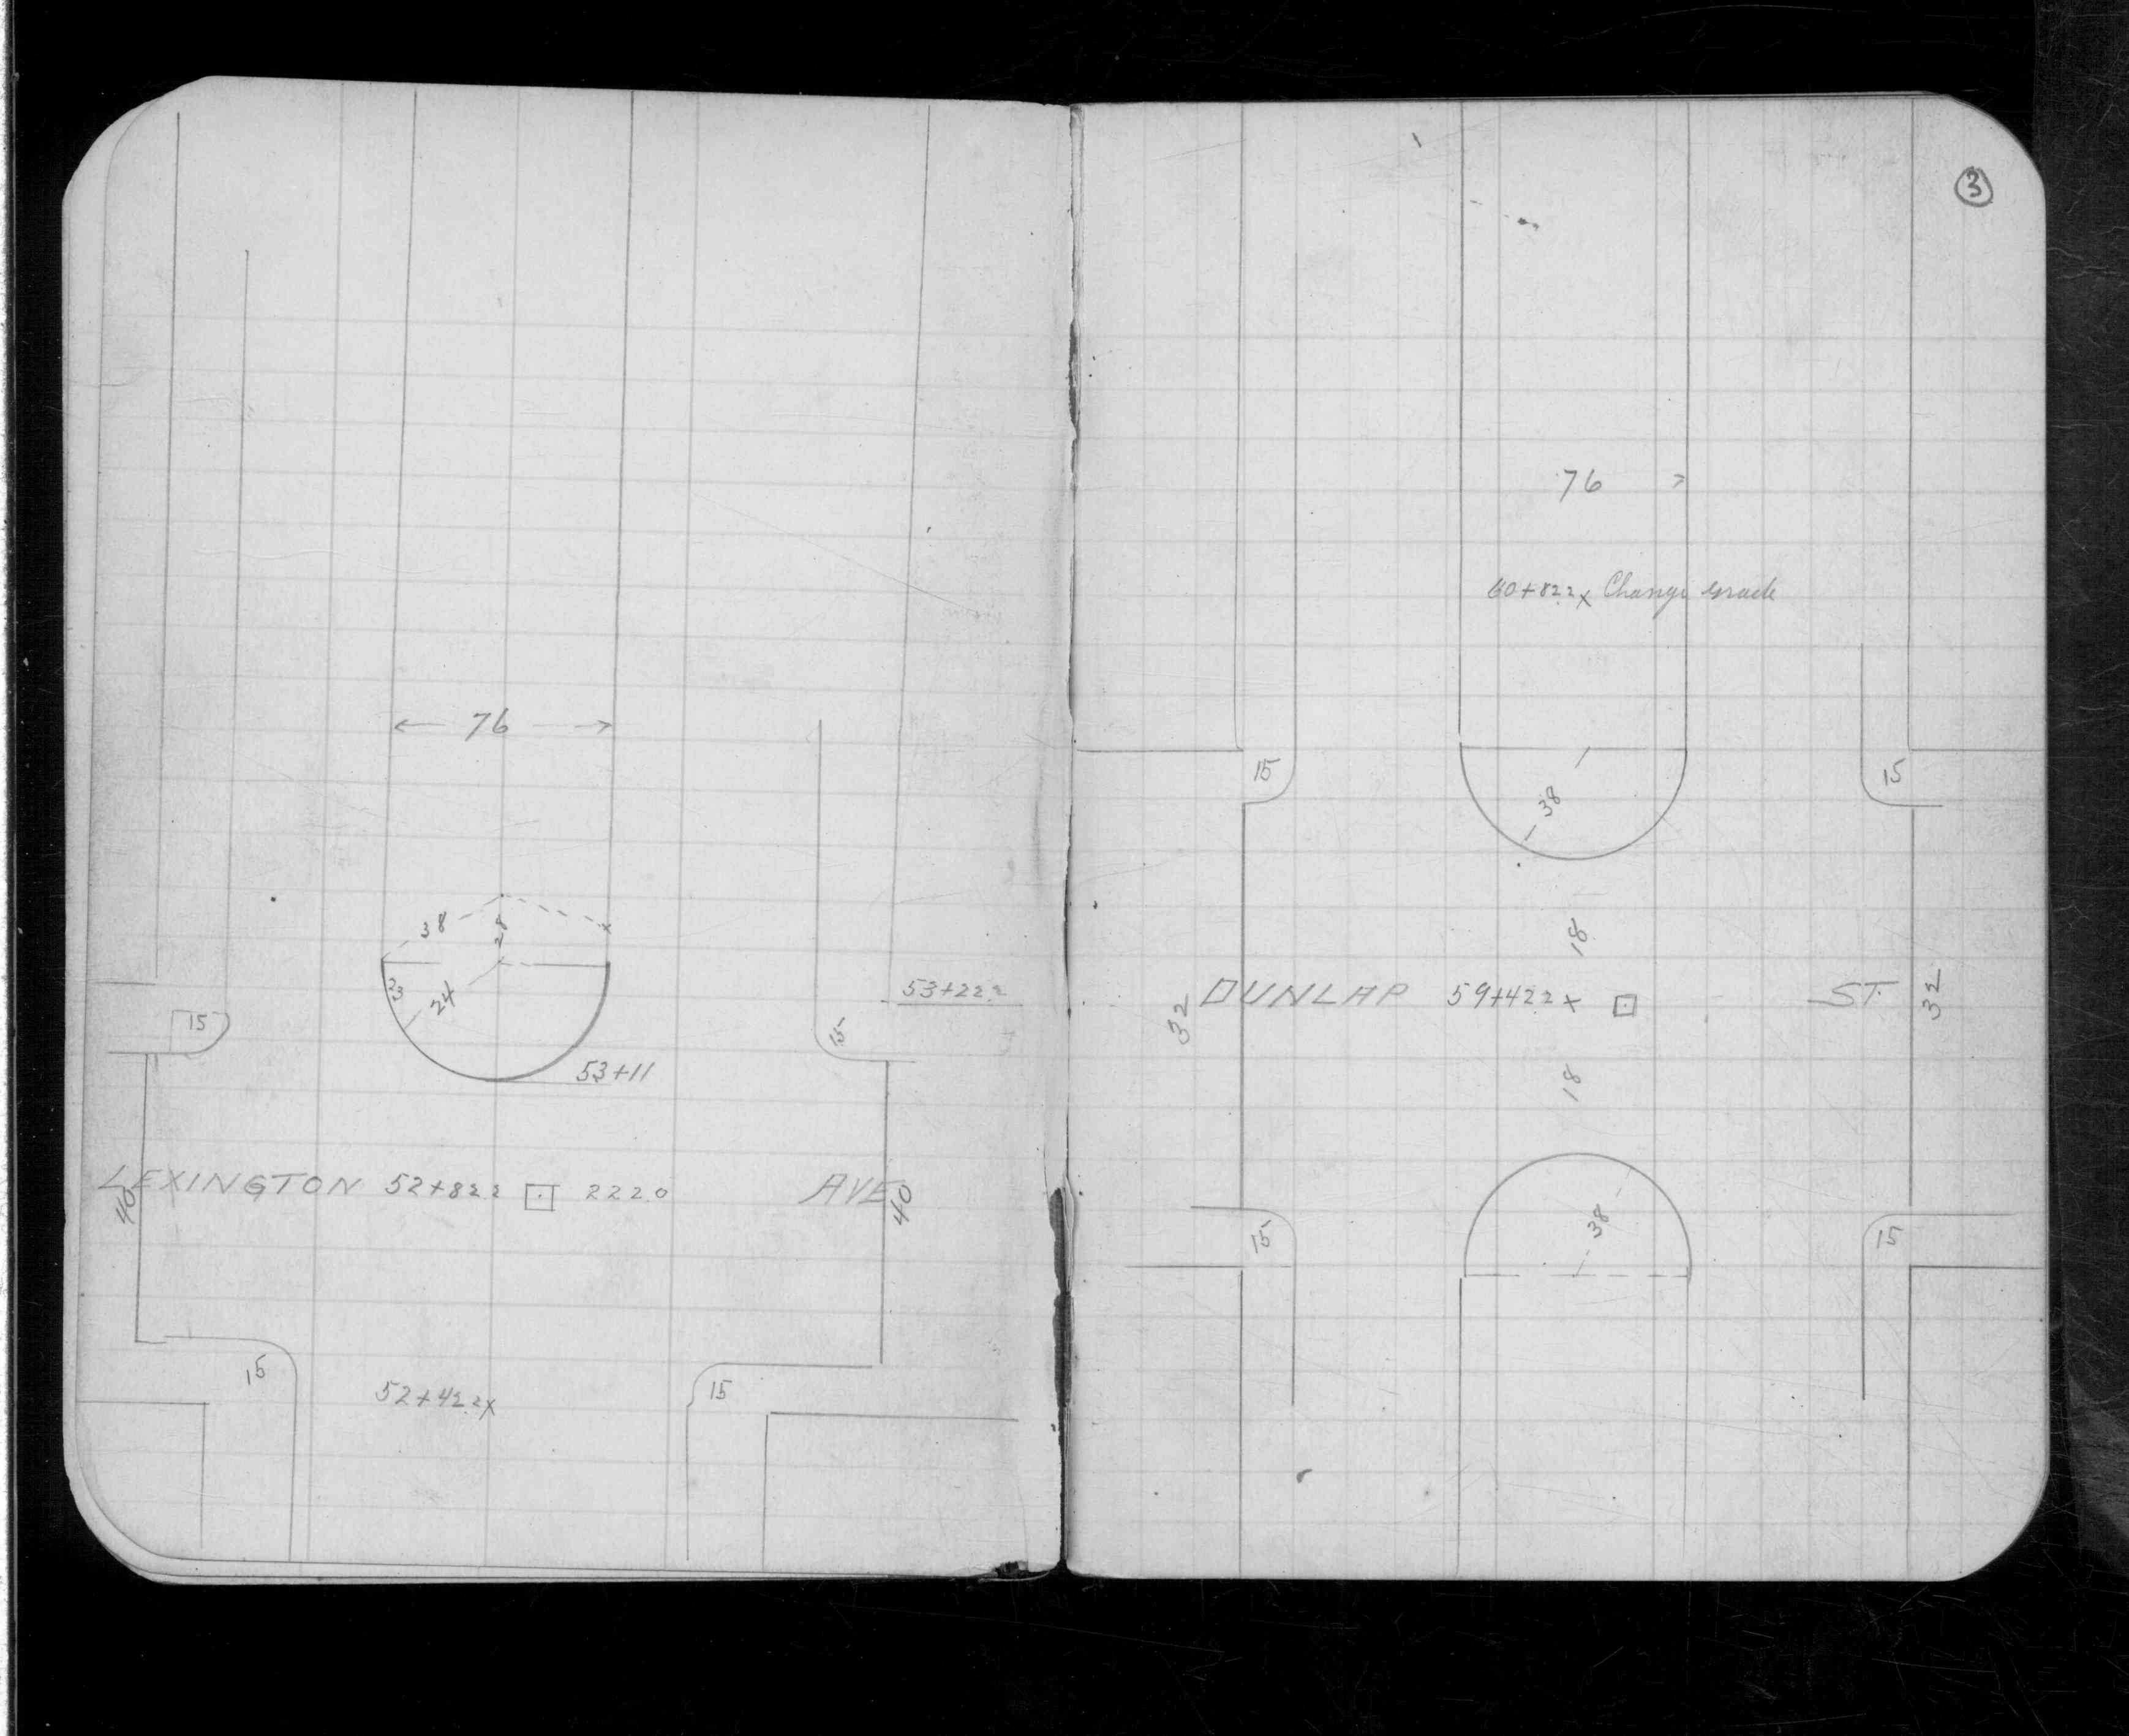 76
38 28
23 24
15
15
53+222
53+11
LEXINGTON 52+822 2220 AVE
40 40
15
52+422x
15
3
76
60+822x Change grade
15
38
15
18
32 DUNLAP 59+422x ST. 32
18
15
38
15